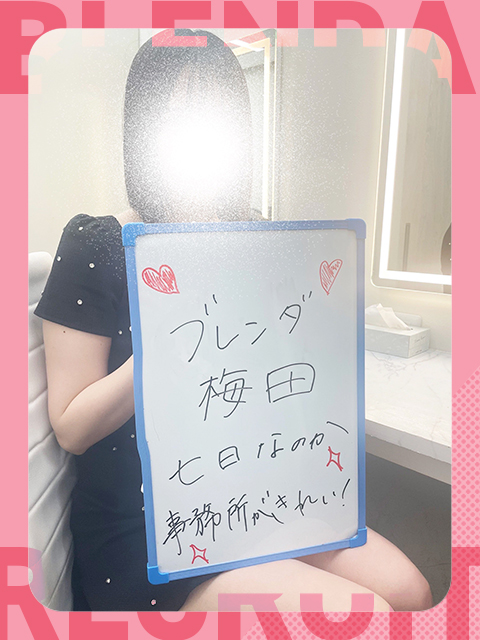 BLENDA
ブレンダ
梅田
七日なのか
事務所がきれい!
RECRUIT